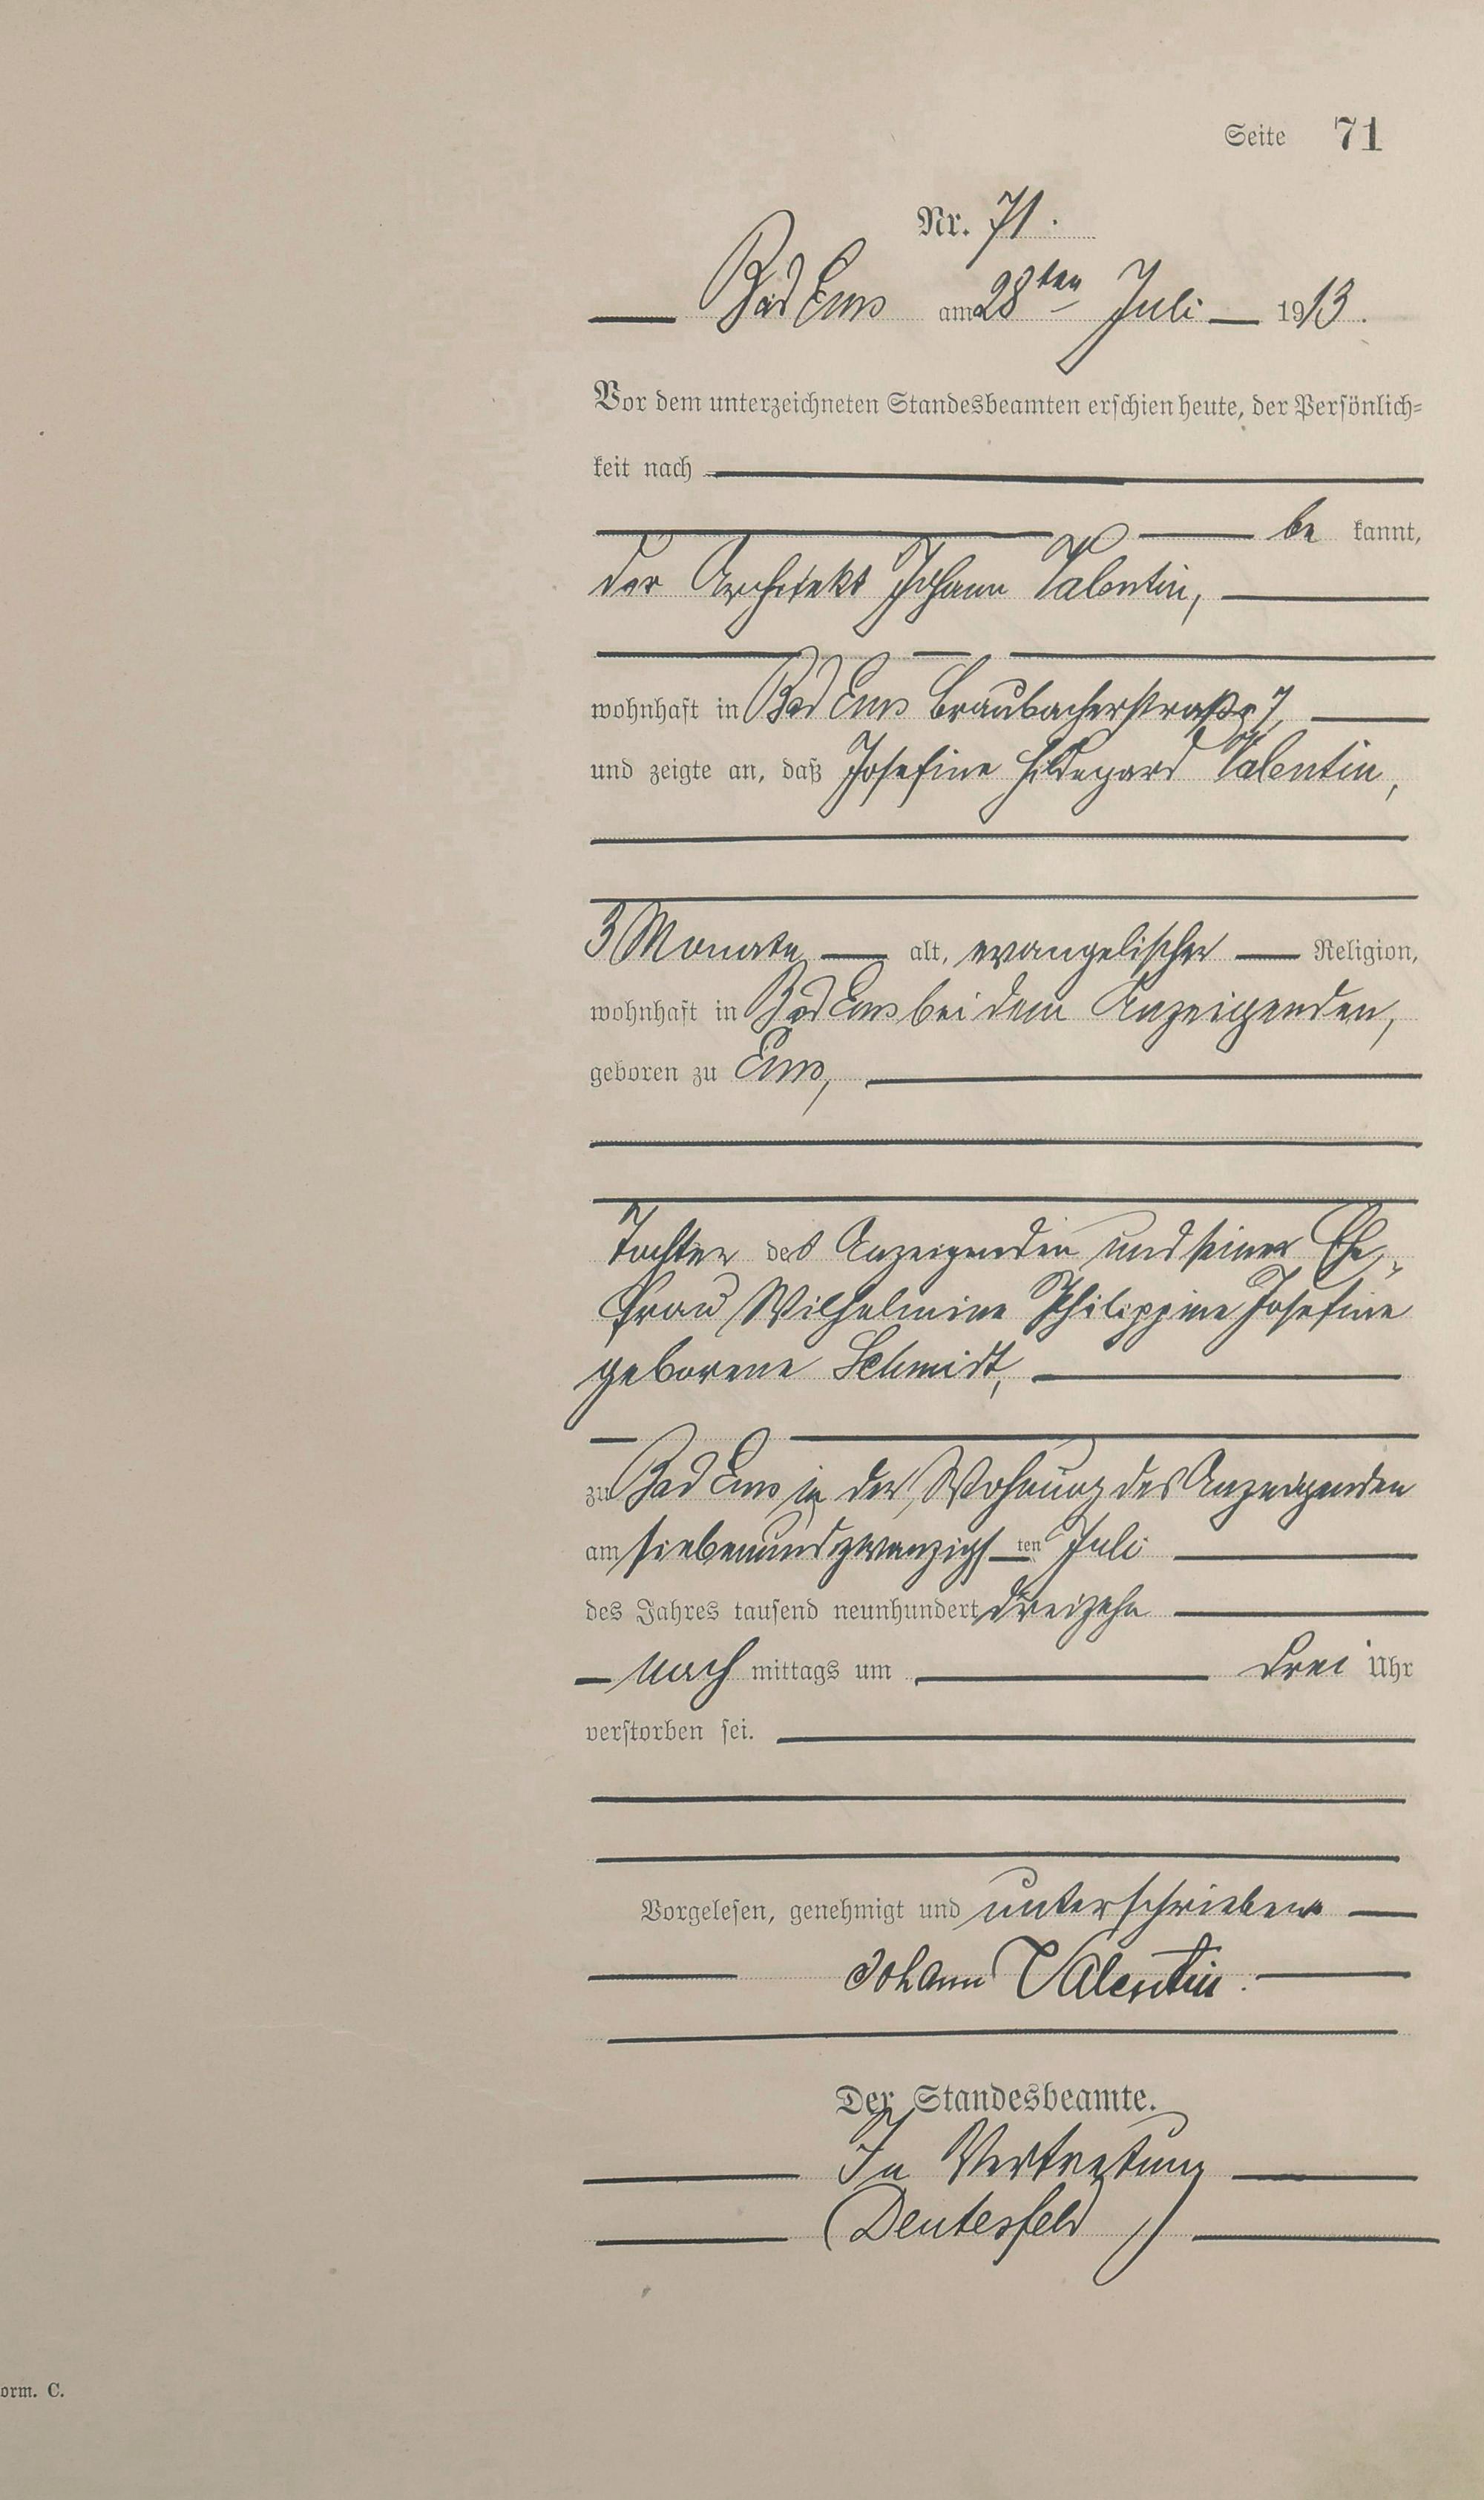 Seite 71
Nr. 71.
Bad Ems am 28ten Juli 1913.
Vor dem unterzeichneten Standesbeamten erschien heute, der Persönlich-
keit nach
be kannt,
der Architekt Johann Valentin,
wohnhaft in Bad Ems Braubacherstraße 7,
und zeigte an, daß Josefine Hildegard Valentin,
3 Monate alt, evangelischer Religion,
wohnhaft in Bad Ems bei dem Anzeigenden,
geboren zu Ems,
Tochter des Anzeigenden und seiner Ehe-
frau Wilhelmine Philippine Josefine
geborene Schmidt,
zu Bad Ems in der Wohnung des Anzeigenden
am siebenundzwanzigsten Juli
des Jahres tausend neunhundert dreizehn
nach mittags um drei Uhr
verstorben sei.
Vorgelesen, genehmigt und unterschrieben
Johann Valentin.
Der Standesbeamte.
In Vertretung
Deutesfeld
orm. C.